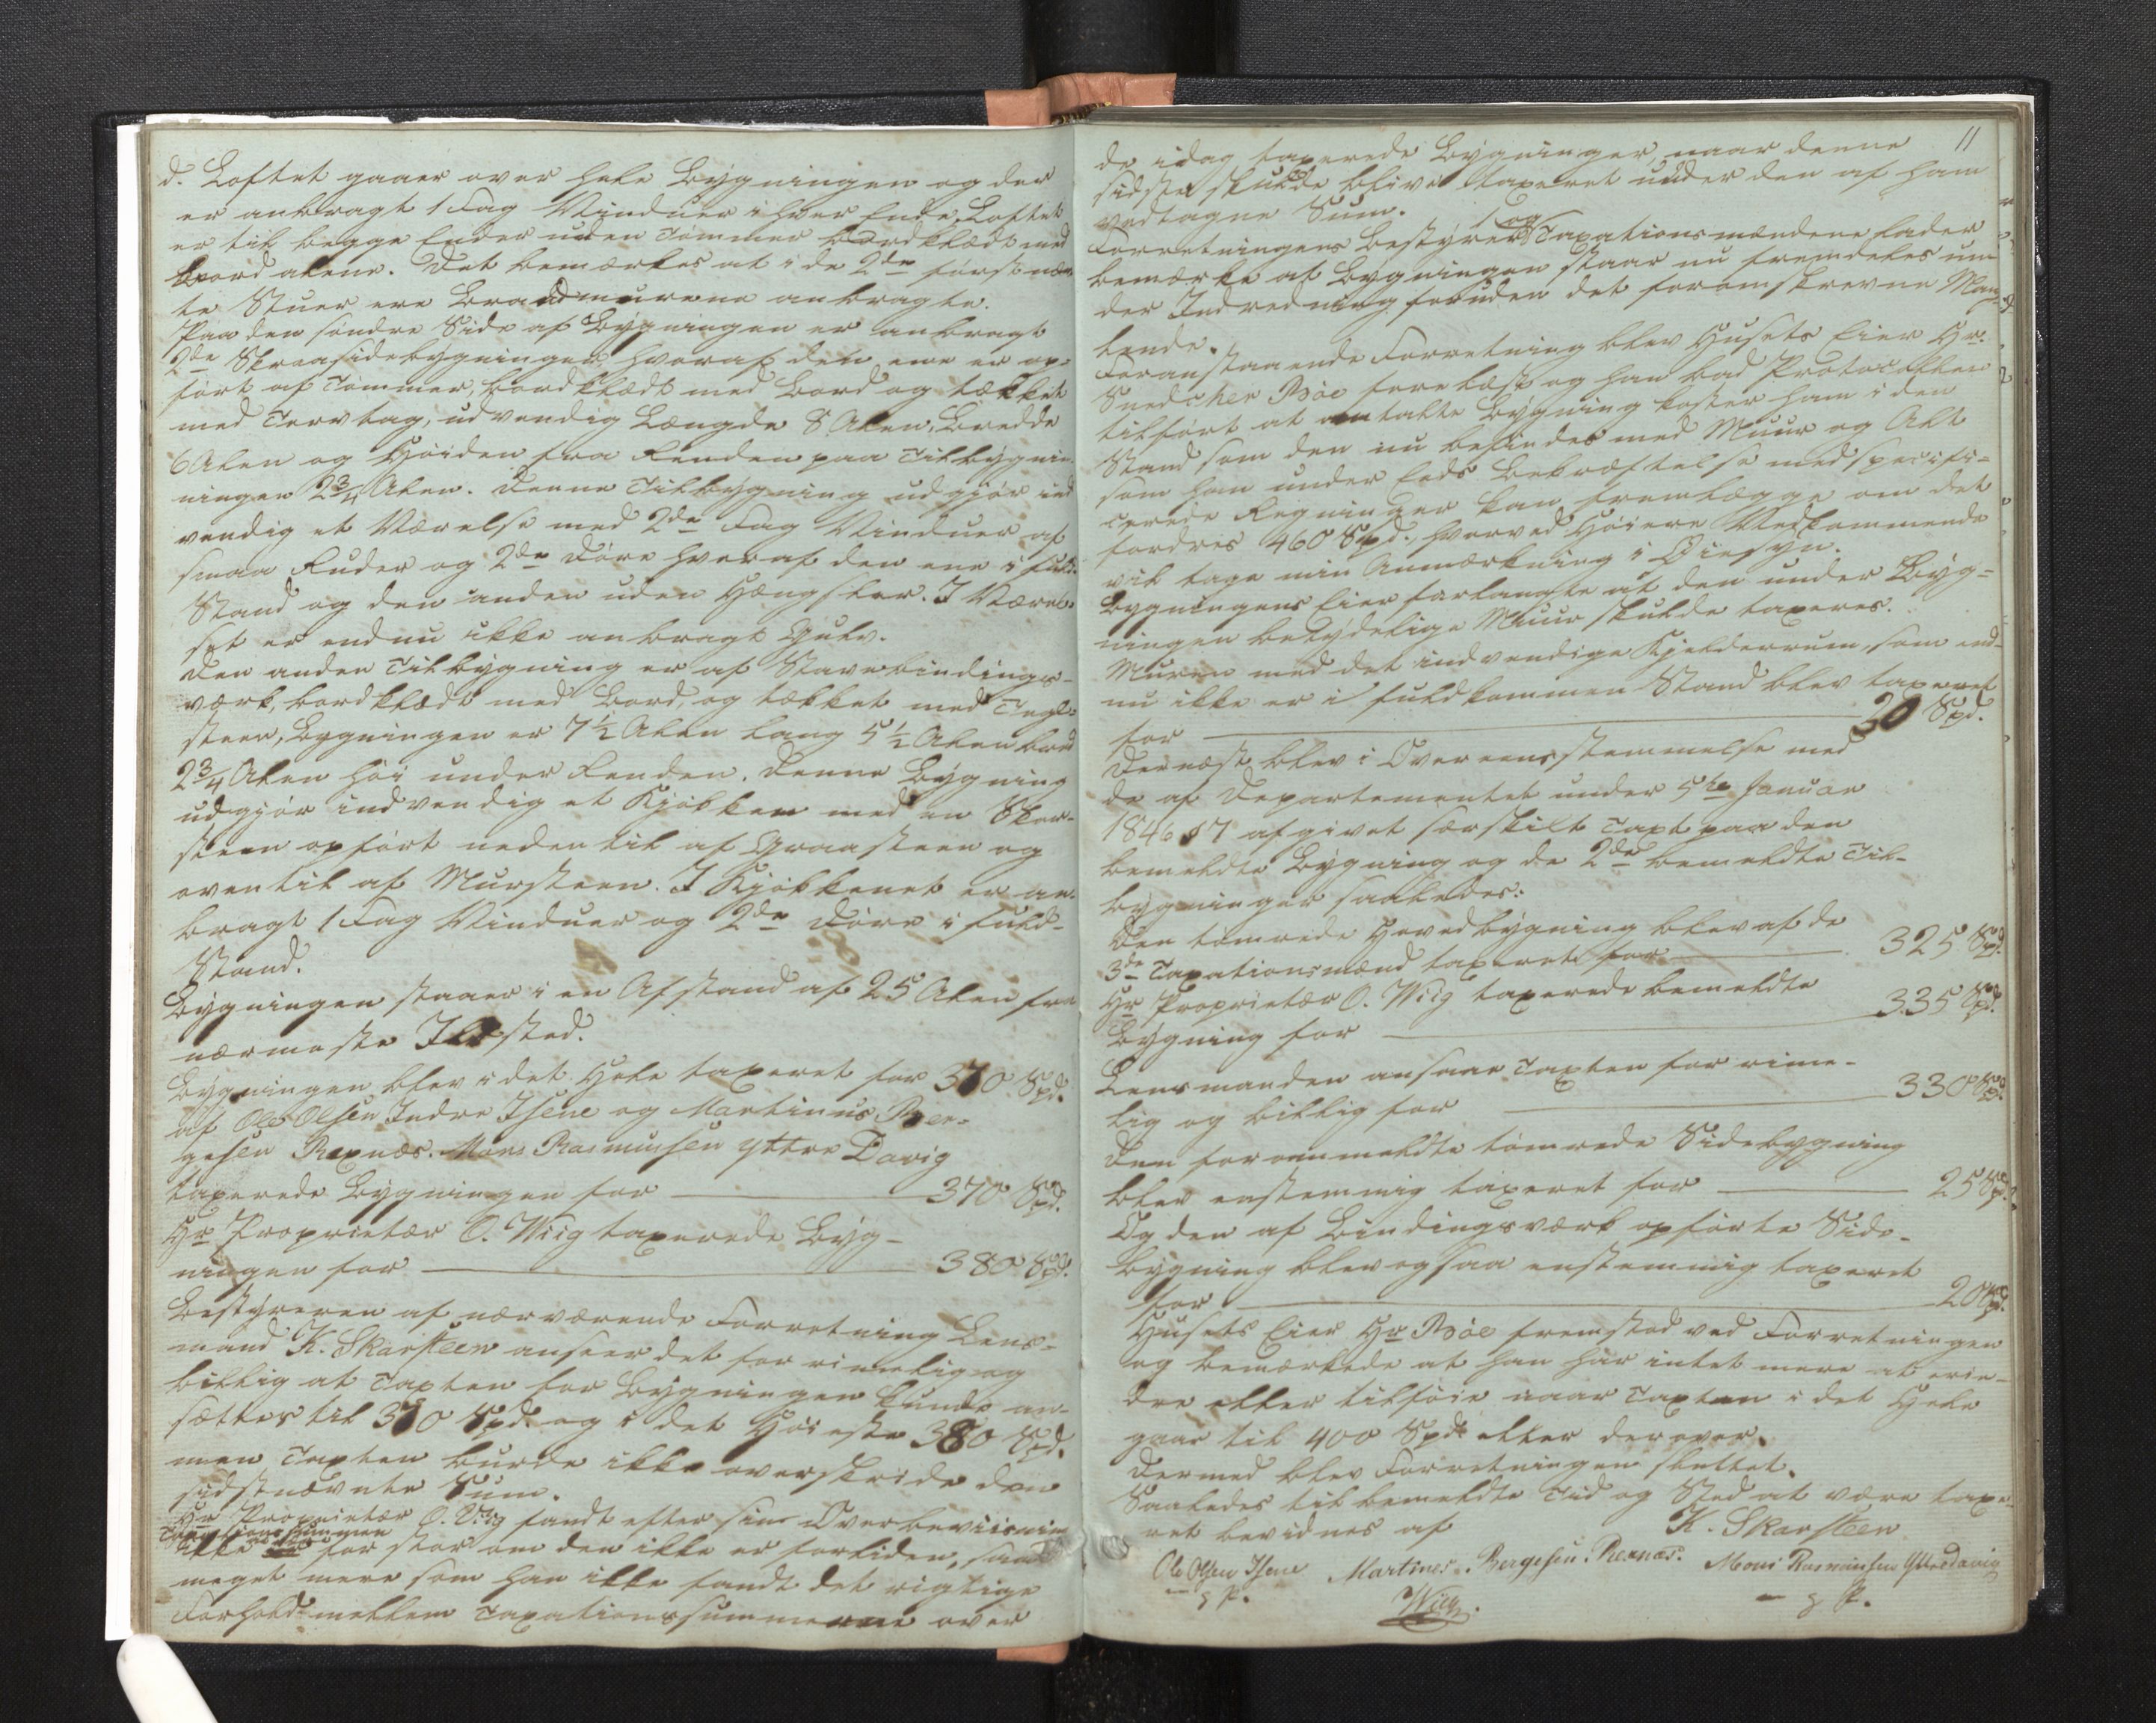 d. Loftet gaaer over hele Bygningen og der
er anbragt 1 Fag Vinduer i hver Ende, Loftet
er til begge Ender uden Tømmer bordklædt med
bord alene. Det bemærkes at i de 2de først nævn
te Stuer ere Brandmurene anbragte.
Paa den søndre Side af Bygningen er anbragt
2de Skraasidebygninger hvoraf den ene er op-
ført af Tømmer, bordklædt med Bord og tækket
med Torvtag, udvendig Længde 8 Alen, Bredde
6 Alen og Høiden fra Renden paa Tilbygnin
ningen 2 3/4 Alen. Denne Tilbygning udgjør ind
vendig et Værelse med 2de Fag Vinduer af
smaa Ruder og 2de Døre hvoraf den ene i fuld
Stand og den anden uden Hængsler. I Værel-
set er endnu ikke anbragt Gulv.
Den anden Tilbygning er af Stavebindings-
værk, bordklædt med Bord, og tækket med Tegl-
steen, Bygningen er 7 1/2 Alen lang 5 1/2 Alen bred
2 3/4 Alen høi under Renden. Denne Bygning
udgjør indvendig et Kjøkken med en Skor-
steen opført nedentil af Graasteen og
oventil af Mursteen. I Kjøkkenet er an-
bragt 1 Fag Vinduer og 2de Døre i fuld-
Stand.
Bygningen staaer i en Afstand af 25 Alen fra
nærmeste Ildsted.
Bygningen blev i det Hele taxeret for 370 Spd.
af Ole Olsen Indre Isene og Martinus Ber-
gesen Rexnæs. Mons Rasmussen yttre Davig
taxerede Bygningen for 370 Spd.
Hr Proprietær O. Wiig taxerede Byg-
ningen for 380 Spd.
Bestyreren af nærværende Forretning Lens-
mand K. Skarsteen anseer det for rimelig og
billig at Taxten for Bygningen kunde an-
sættes til 370 Spd. og i det Høieste 380 Spd.
men Taxten burde ikke overskride den
sidstnævnte Sum.
Hr Proprietær O. Wiig fandt efter sin Overbeviisning
Taxationssummen
ikke for stor om den ikke er forliden, saa
meget mere som han ikke fandt det rigtige
Forhold mellem Taxationssummerne over
11
de idag taxerede Bygninger, naar denne
sidste skulde blive taxeret under den af ham
vedtagne Sum.
og
Forretningens Bestyrer Taxationsmændene lader
bemærke at Bygningen staar nu fremdeles un
der Indredning foruden det foromskrevne Man-
lende.
Foranstaaende Forretning blev Husets Eier Hr.
Snedcher Bøe forelæst og han bad Protocollen
tilført at omtalte Bygning koster ham i den
Stand som den nu befindes med Muur og Alt
som han under Eds Bekræftelse med specifi-
cerede Regninger kan fremlægge om det
fordres 460 Spd., hvorved Høiere Vedkommende
vil tage min Anmærkning i Øiesyn.
Bygningens Eier forlangte at den under Byg-
ningen betydelige Muur skulde taxeres.
Muren med det indvendige Kjelderrum, som end-
nu ikke er i fuldkommen Stand blev taxeret
for 30 Spd.
Dernæst blev i Overeensstemmelse med
de af Departementet under 5te Januar
1846 afgivet særskilt Taxt paa den
bemeldte Bygning og de 2de bemeldte Til-
bygninger saaledes:
Den tømrede Hovedbygning blev af de
3de Taxationsmænd taxeret for 325 Spd.
Hr Proprietær O. Wiig taxerede bemeldte
Bygning for 335 Spd.
Lensmanden ansaae Taxten for rime-
lig og billig for 330 Spd.
Den foranmeldte tømrede Sidebygning
blev enstemmig taxeret for 25 Spd.
Og den af Bindingsværk opførte Side-
bygning blev ogsaa enstemmig taxeret
for 20 Spd.
Husets Eier Hr Bøe fremstod ved Forretningen
og bemærkede at han har intet mere at erin-
dre eller tilføie naar Taxten i det Hele
gaar til 400 Spd. eller derover.
Dermed blev Forretningen sluttet.
Saaledes til bemeldte Tid og Sted at være taxe-
ret bevidnes af
K. Skarsteen
Ole Olsen Isene Martines Bergesen Rexnæs. Mons Rasmussen Yttredavig
m. p. P. Wiig. m. p. P.